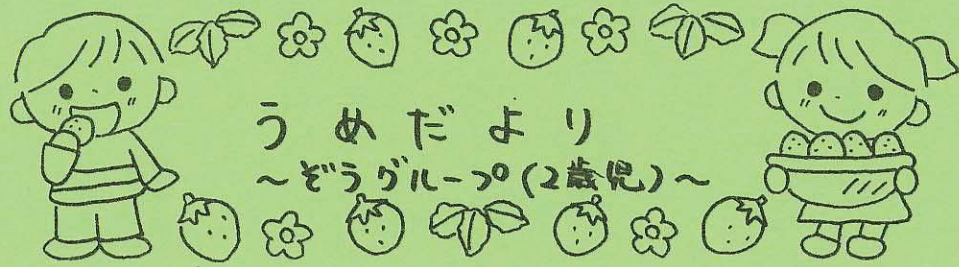 うめだより
～ぞうグループ(2歳児)～